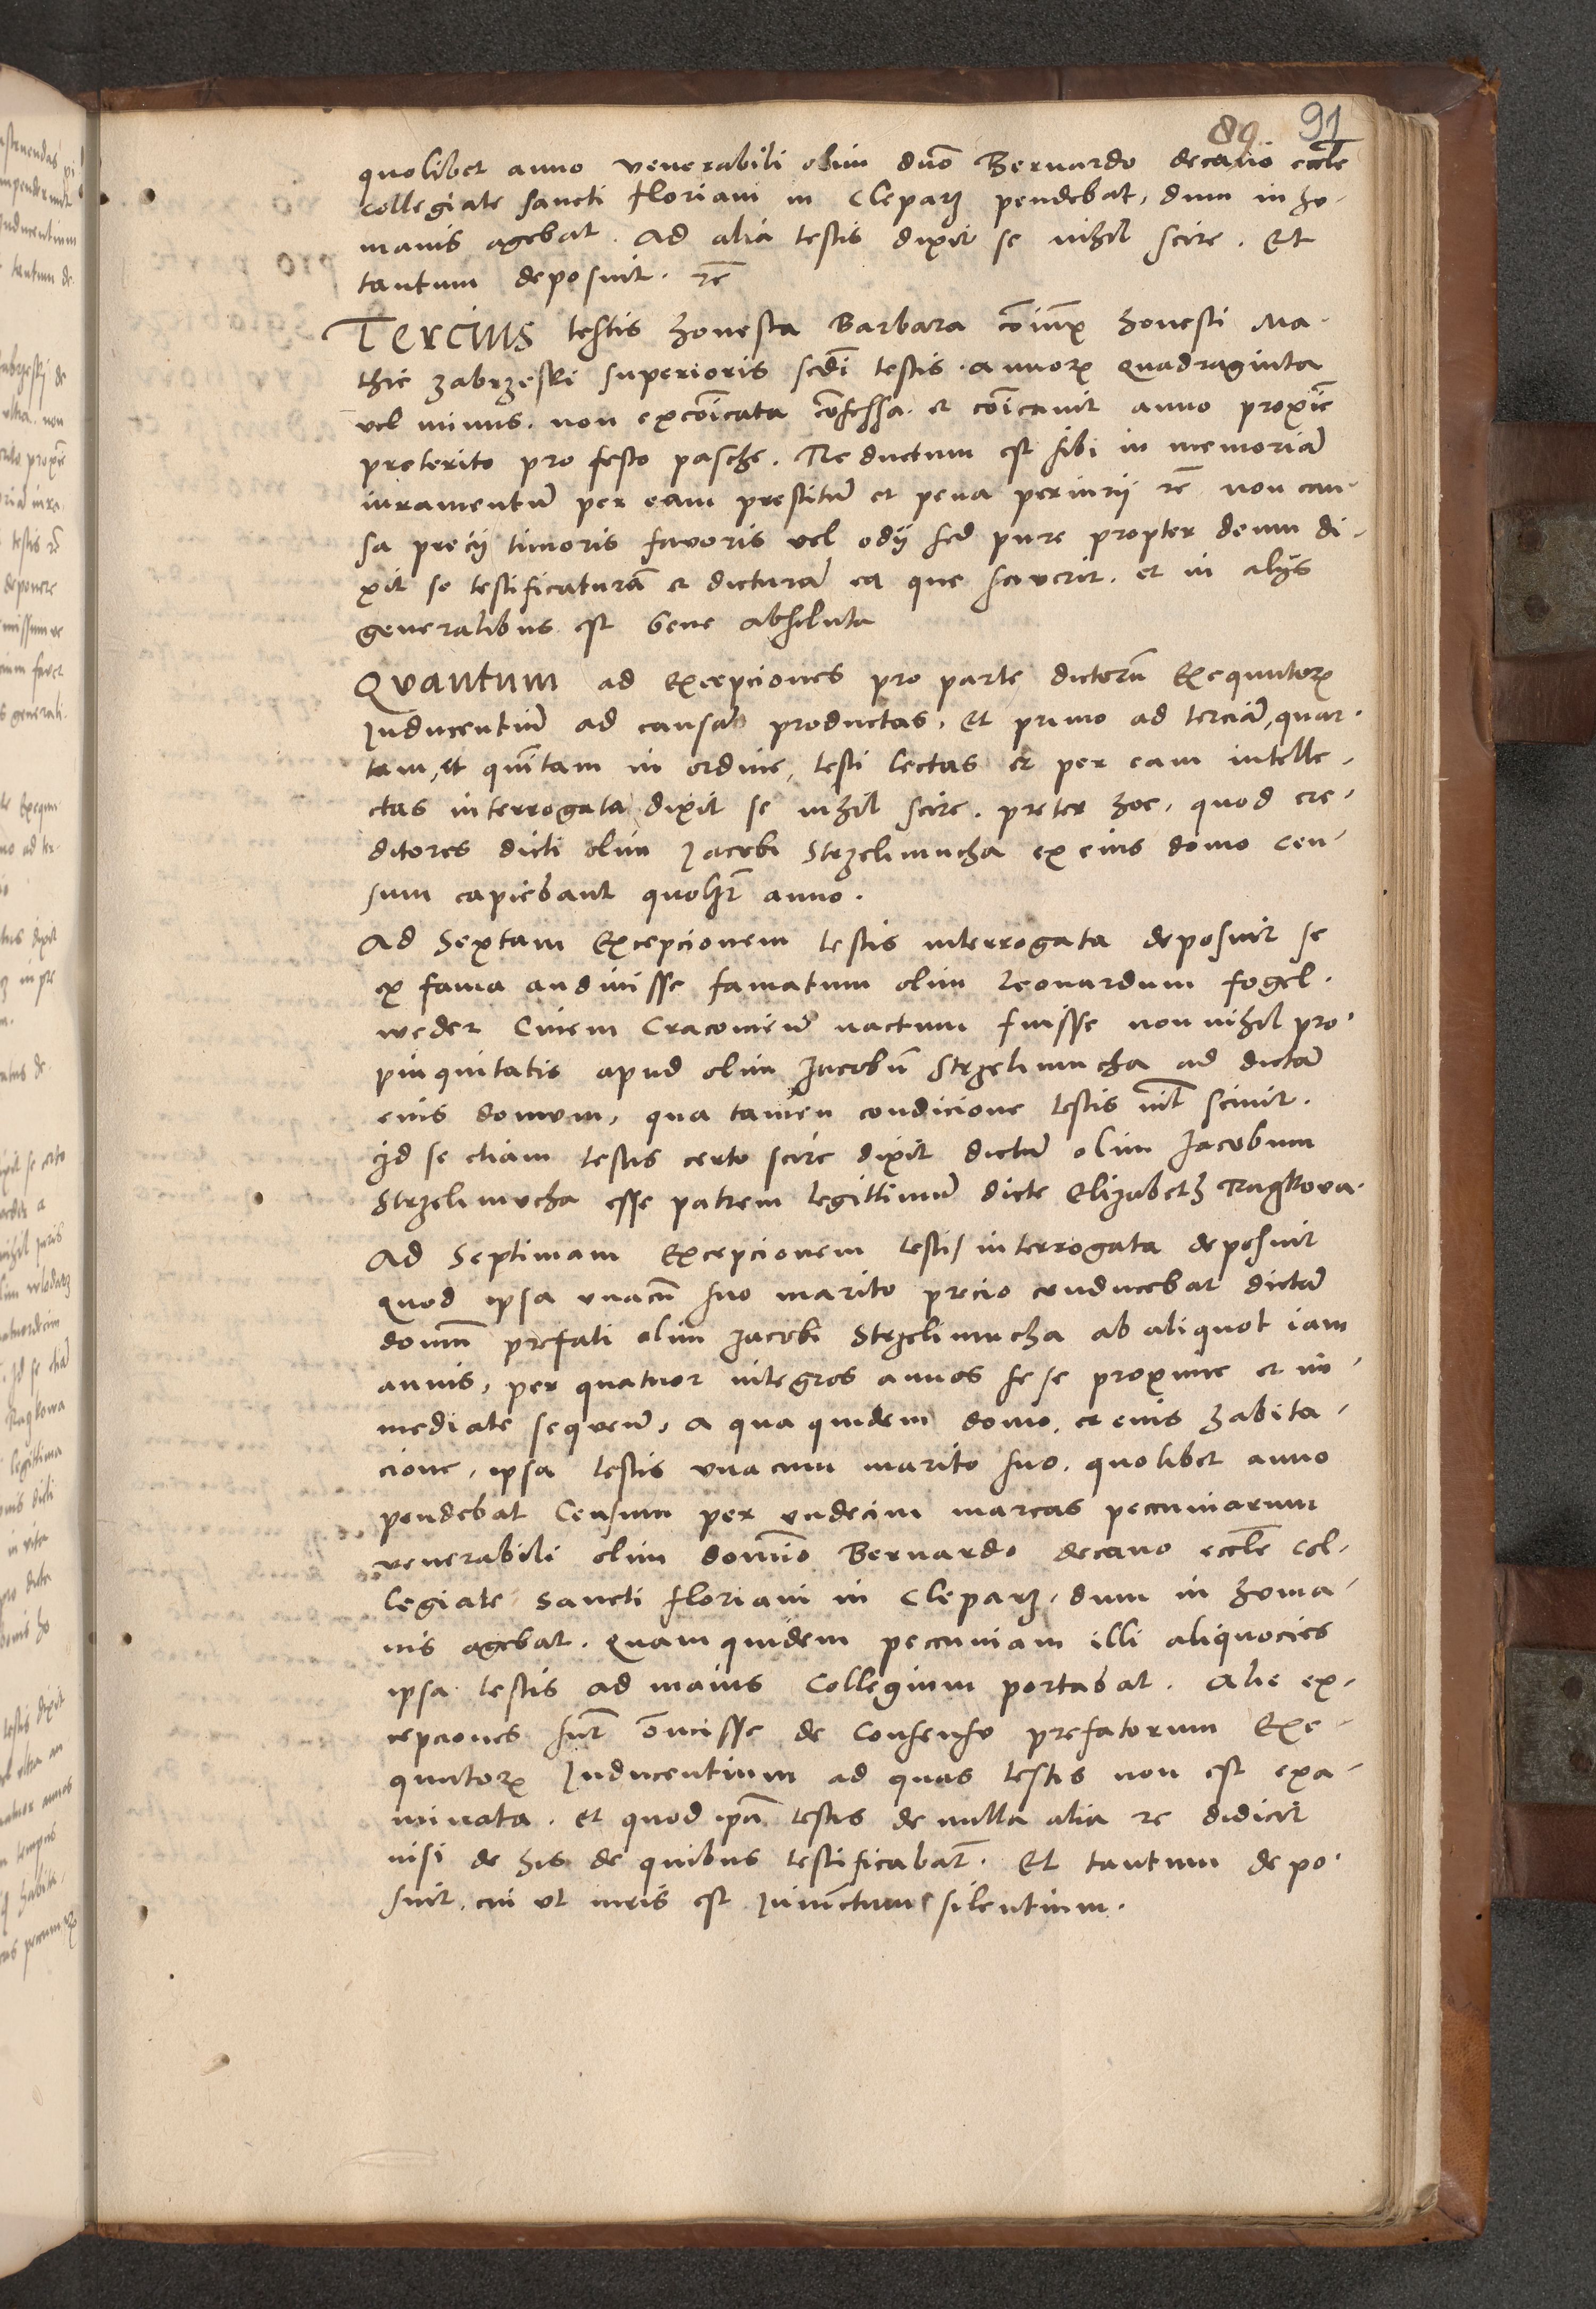 89 91
quolibet anno venerabili olim dno Bernardo decano eccle
Collegiate sancti Floriani in Cleparz pendebat, dum in hu-
manis agebat. Ad alia testis dixit se nihil scire. Et
tantum deposuit. rc
Tercius testis honesta Barbara coniux honesti Ma-
thie Zabrzeski superioris scdi testis. annorum quadraginta
vel minus. non excoicata confessa. et coicavit anno proxie
preterito pro festo pasche. Reductum est sibi in memoriam
iuramentum per eam prestitum et pena periurij rc non cau-
sa precij timoris favoris vel odij sed pure propter deum di-
xit se testificaturam et dicturam ea que sciverit. et in alijs
generalibus est bene absoluta
Quantum ad Excepciones pro parte dictorum Exequutorum
Inducentium ad causam productas. Et primo ad terciam, quar-
tam, et quintam in ordine, testi lectas et per eam intelle-
ctas interrogata dixit se nihil scire. preter hoc, quod cre-
ditores dicti olim Jacobi Strzelimucha ex eius domo cen-
sum capiebant quolibet anno.
Ad Sextam Excepcionem testis interrogata deposuit se
ex fama audivisse famatum olim Leonardum Fogel-
weder Civem Cracoviensem nactum fuisse nonnihil pro-
pinquitatis apud olim Jacobum Strzelimucha ad dictam
eius domum, qua tamen condicione testis nil scivit.
Id se etiam testis certo scire dixit dictum olim Jacobum
Strzelimucha esse patrem legittimum dicte Elizabeth Raglkova.
Ad Septimam Excepcionem testis interrogata deposuit
quod ipsa unacum suo marito precio conducebat dictam
domum prefati olim Jacobi Strzelimucha ab aliquot iam
annis, per quatuor integros annos se se proxime et im-
mediate sequentes, a qua quidem domo, et eius habita-
cione, ipsa testis una cum marito suo. quolibet anno
pendebat Censum per undecim marcas pecuniarum
venerabili olim domino Bernardo decano eccle Col-
legiate Sancti Floriani in Cleparz. dum in huma-
nis agebat. Quam quidem pecuniam illi aliquocies
ipsa testis ad maius Collegium portabat. Alie ex-
cepciones sunt omisse de Consensu prefatorum Exe-
quutorum Inducentium ad quas testis non est exa-
minata. et quod ipsa testis de nulla alia re didicit
nisi de his de quibus testificabatur. Et tantum depo-
suit, cui ut iuris est iniunctum silentium.